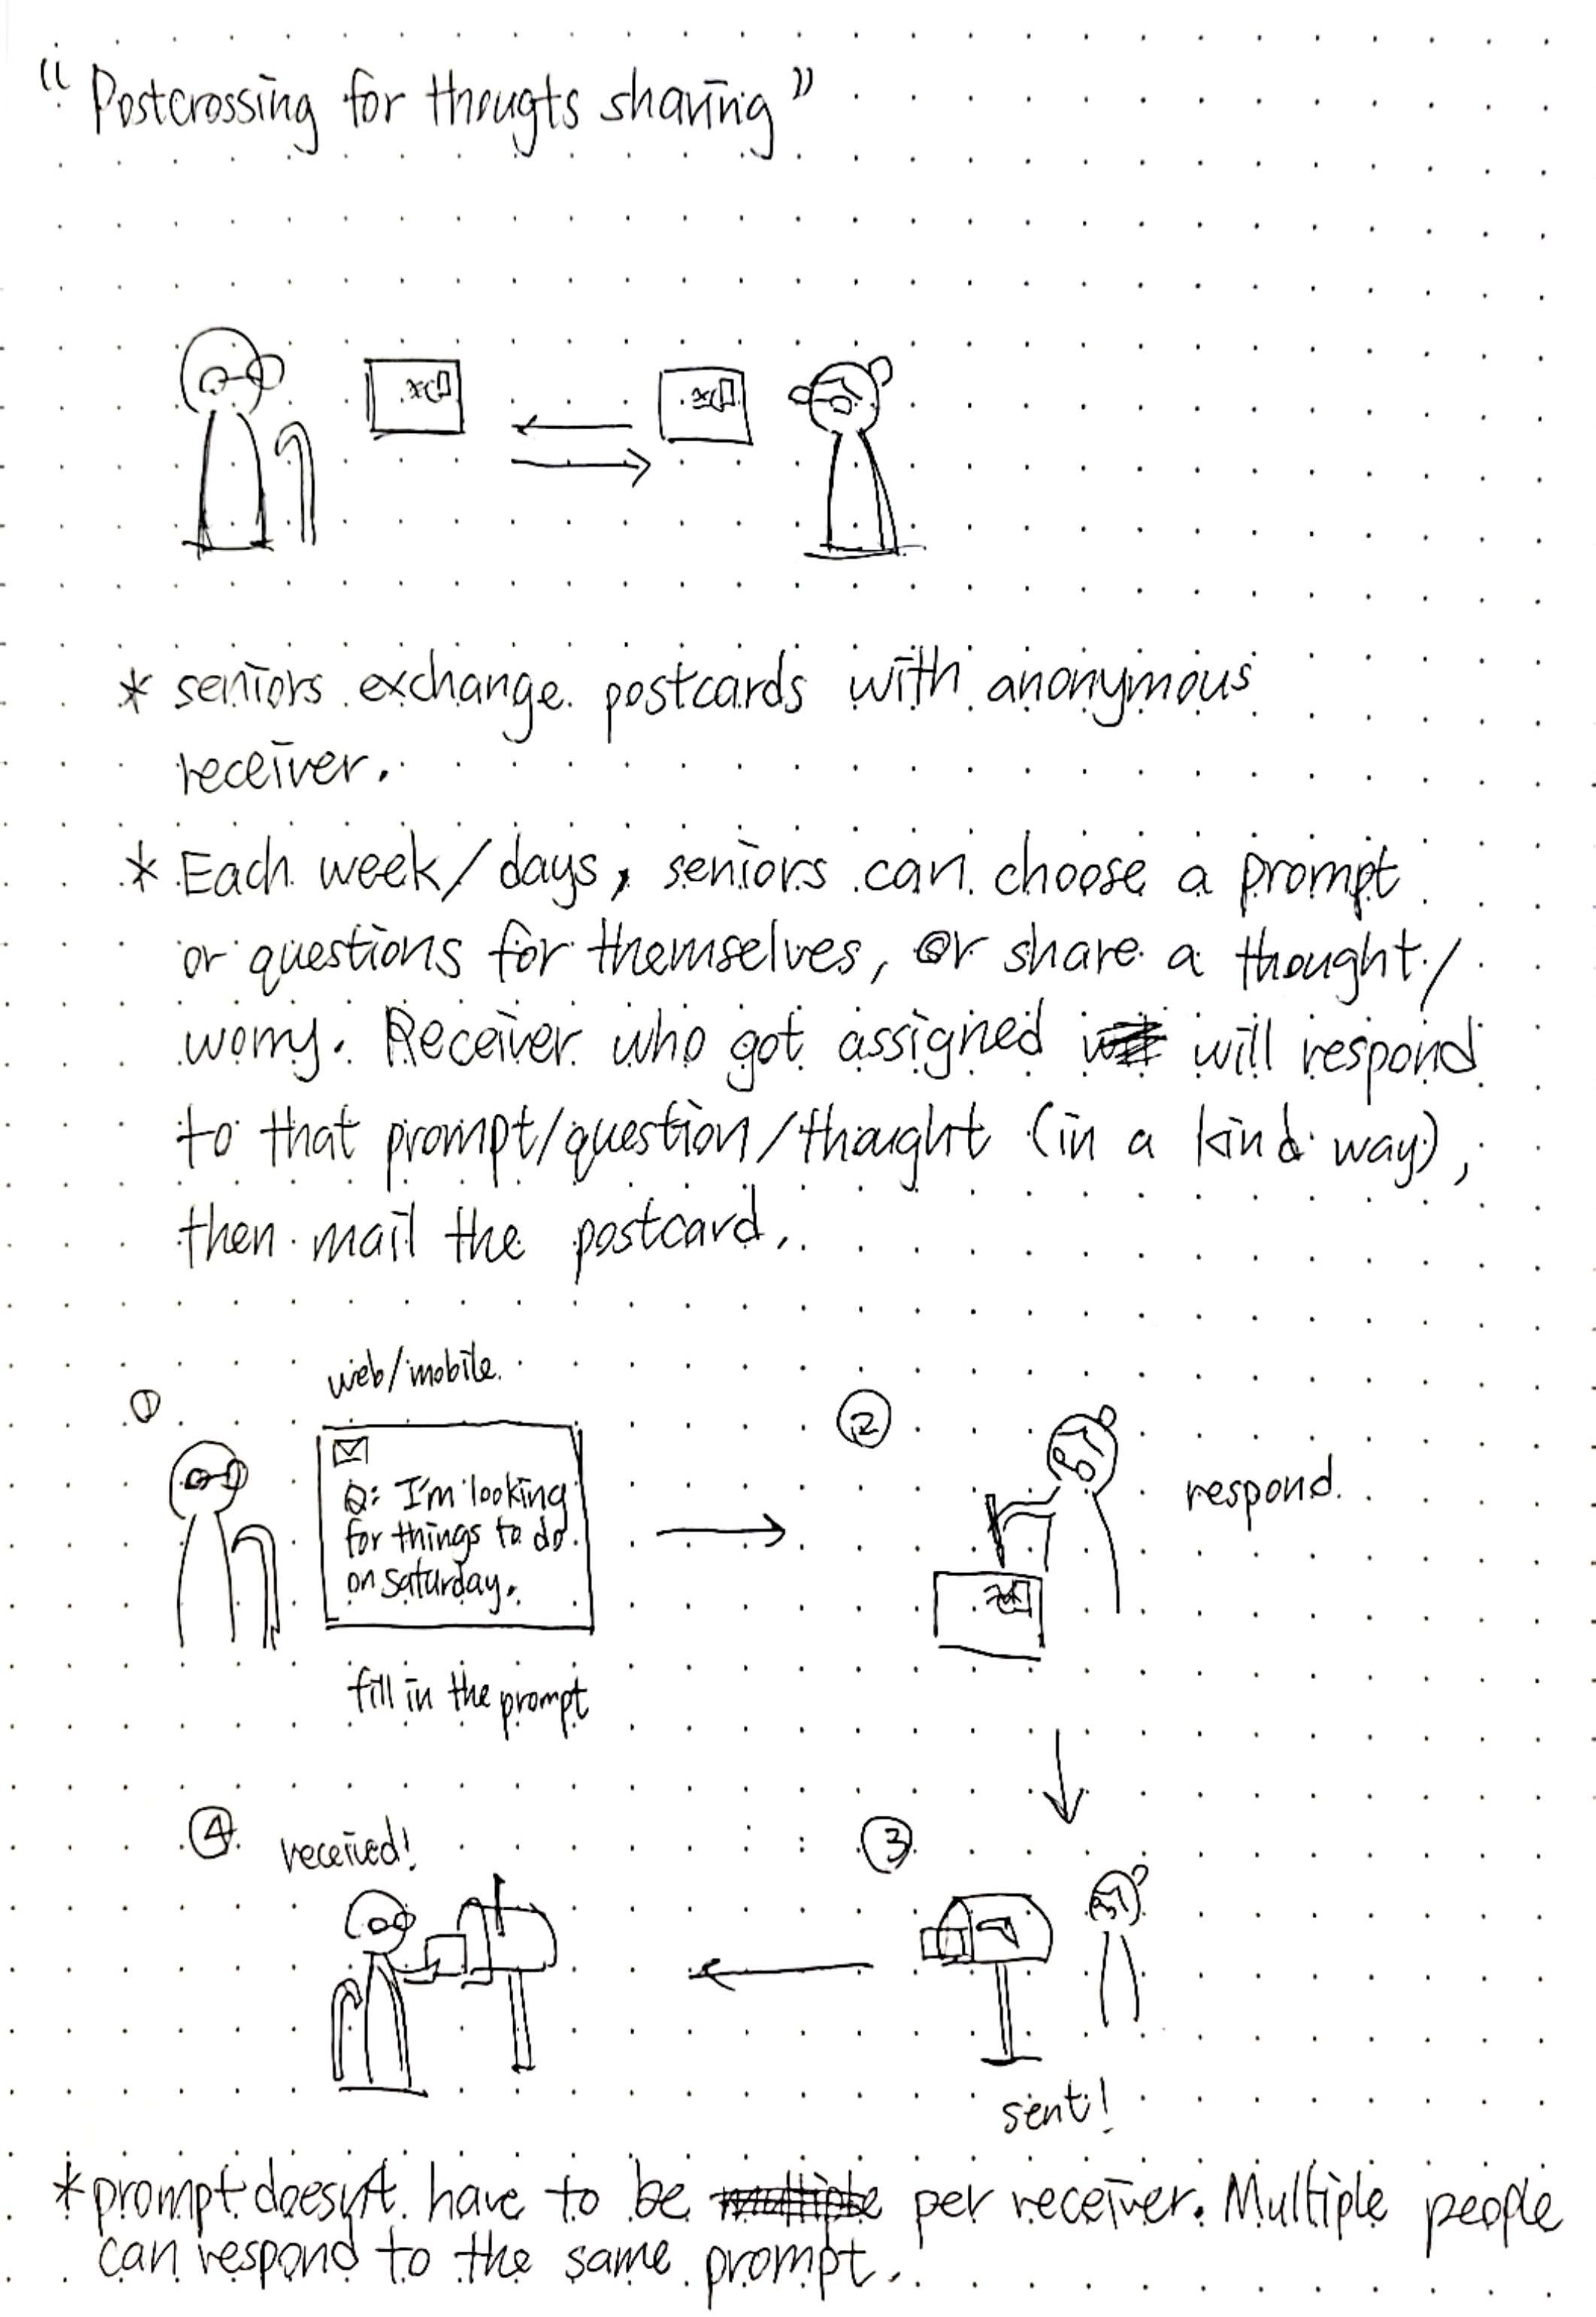 “Postcrossing for thougts sharing”
* seniors exchange postcards with anonymous
receiver.
* Each week/days, seniors can choose a prompt
or questions for themselves, or share a thought/
worry. Receiver who got assigned will respond
to that prompt/question/thought (in a kind way),
then mail the postcard.
web/mobile.
①
Q: I'm looking
for things to do
on saturday.
fill in the prompt
②
respond.
④ received!
③
sent!
*prompt doesn't have to be multiple per receiver. Multiple people
can respond to the same prompt.